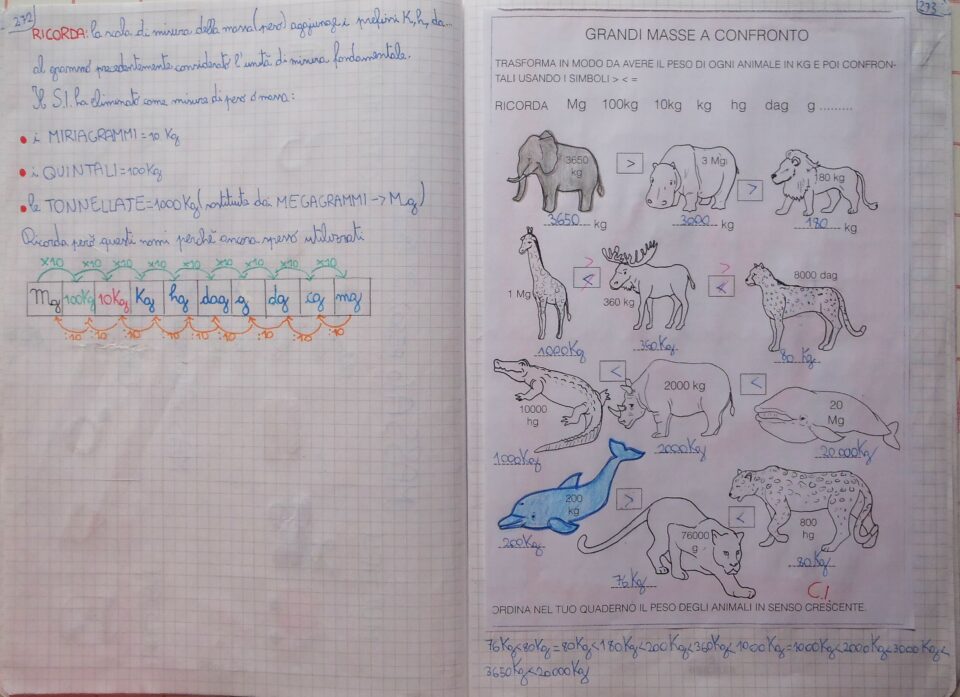 272
RICORDA: la scala di misura della massa (peso) aggiunge i prefissi K, h, da...
al grammo precedentemente considerato l'unità di misura fondamentale.
Il S.I. ha eliminato come misure di peso o massa:
• i MIRIAGRAMMI = 10 Kg
• i QUINTALI = 100 Kg
• le TONNELLATE = 1000 Kg (sostituite dai MEGAGRAMMI → Mg)
Ricorda però questi nomi perché ancora spesso utilizzati
x10 x10 x10 x10 x10 x10 x10 x10 x10
Mg 100Kg 10Kg Kg hg dag g dg cg mg
:10 :10 :10 :10 :10 :10 :10 :10 :10
273
GRANDI MASSE A CONFRONTO
TRASFORMA IN MODO DA AVERE IL PESO DI OGNI ANIMALE IN KG E POI CONFRON-
TALI USANDO I SIMBOLI > < =
RICORDA Mg 100kg 10kg kg hg dag g .........
3650 kg > 3 Mg > 180 kg
3650 kg 3000 kg 180 kg
> >
1 Mg < 360 kg < 8000 dag
1000 Kg 360 Kg 80 Kg
10000 hg < 2000 kg < 20 Mg
1000 Kg 2000 Kg 20000 Kg
200 kg > 76000 g < 800 hg
200 Kg 76 Kg 80 Kg
C.I.
ORDINA NEL TUO QUADERNO IL PESO DEGLI ANIMALI IN SENSO CRESCENTE.
76 Kg < 80 Kg = 80 Kg < 180 Kg < 200 Kg < 360 Kg < 1000 Kg = 1000 Kg < 2000 Kg < 3000 Kg <
3650 Kg < 20000 Kg